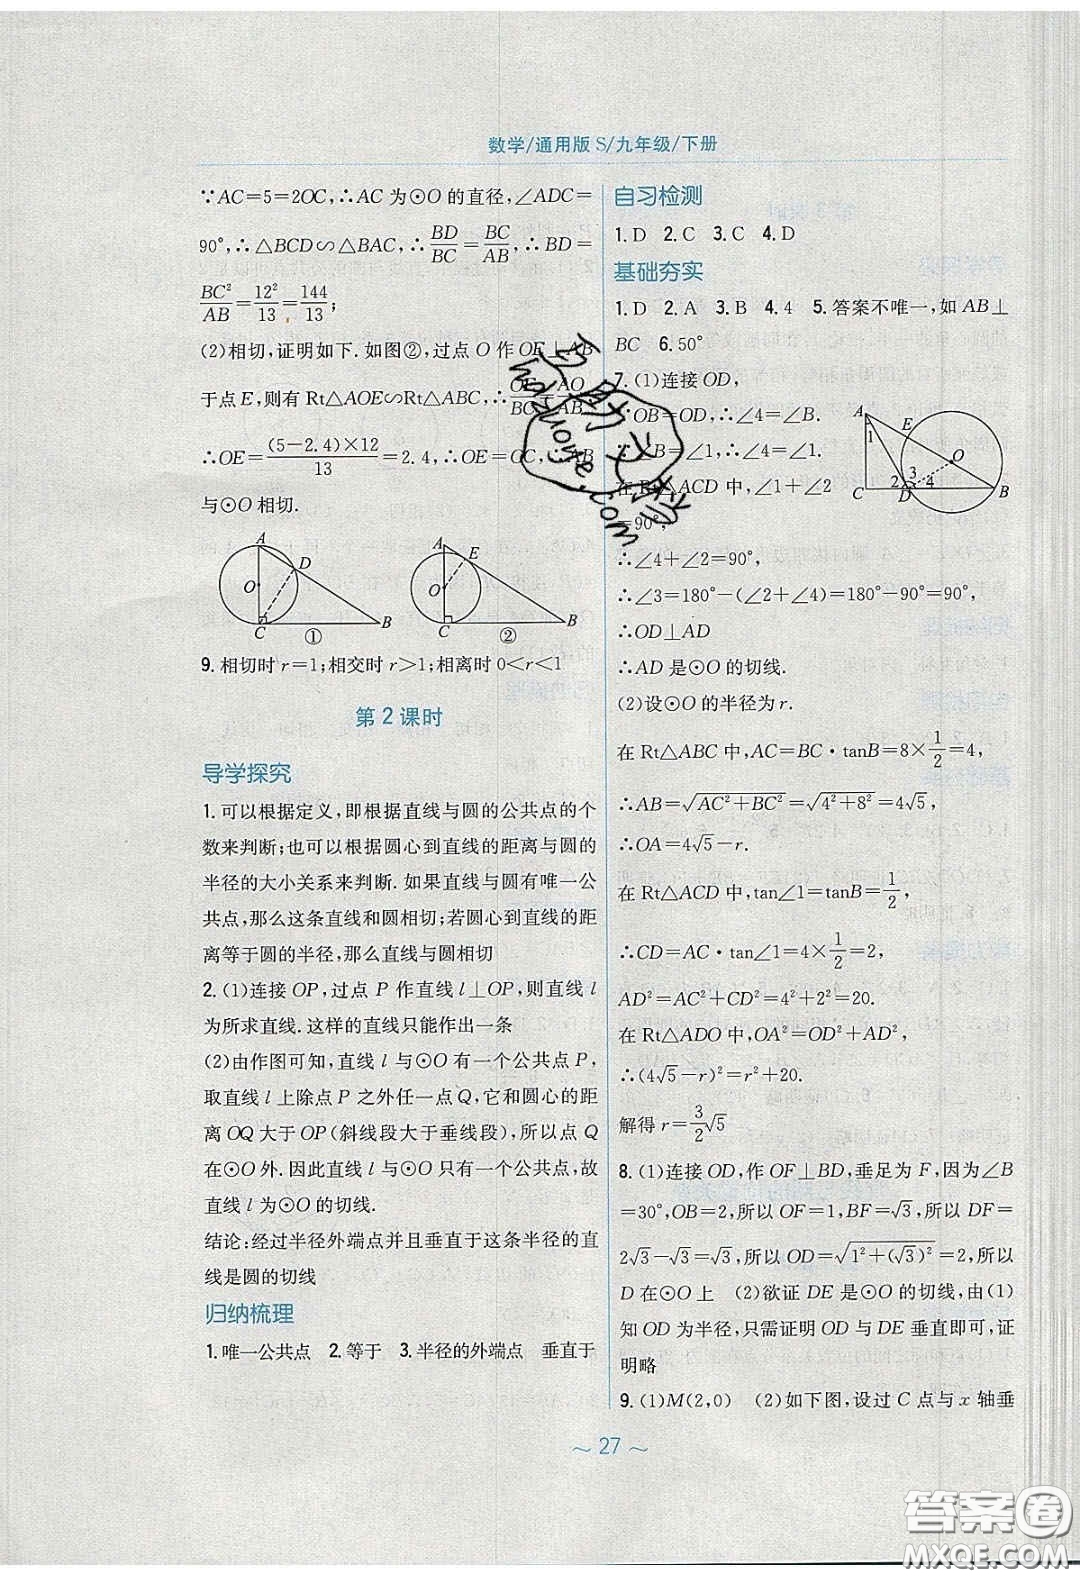 数学/通用版 S/九年级/下册
∵AC=5=2OC,∴AC 为⊙O 的直径,∠ADC=
90°,∴△BCD∽△BAC,∴BD/BC=BC/AB,∴BD=
BC²/AB=12²/13=144/13;
(2)相切,证明如下.如图②,过点 O 作 OE⊥AB
于点 E,则有 Rt△AOE∽Rt△ABC,∴OE/BC=AO/AB.
∴OE=(5-2.4)×12/13=2.4,∴OE=OC,∴AB
与⊙O 相切.
A
D
O
C
B
①
A
E
O
C
B
②
9. 相切时 r=1;相交时 r>1;相离时 0<r<1
第 2 课时
导学探究
1. 可以根据定义,即根据直线与圆的公共点的个
数来判断;也可以根据圆心到直线的距离与圆的
半径的大小关系来判断. 如果直线与圆有唯一公
共点,那么这条直线和圆相切;若圆心到直线的距
离等于圆的半径,那么直线与圆相切
2. (1)连接 OP,过点 P 作直线 l⊥OP,则直线 l
为所求直线.这样的直线只能作出一条
(2)由作图可知,直线 l 与⊙O 有一个公共点 P,
取直线 l 上除点 P 之外任一点 Q,它和圆心的距
离 OQ 大于 OP(斜线段大于垂线段),所以点 Q
在⊙O 外. 因此直线 l 与⊙O 只有一个公共点,故
直线 l 为⊙O 的切线.
结论:经过半径外端点并且垂直于这条半径的直
线是圆的切线
归纳梳理
1. 唯一公共点 2. 等于 3. 半径的外端点 垂直于
自习检测
1. D 2. C 3. C 4. D
基础夯实
1. D 2. A 3. B 4. 4 5. 答案不唯一,如 AB⊥
BC 6. 50°
7. (1)连接 OD,
∵OB=OD,∴∠4=∠B.
∵∠B=∠1,∴∠1=∠4.
在 Rt△ACD 中,∠1+∠2
=90°,
A
E
1
O
3
2
4
C
D
B
∴∠4+∠2=90°,
∴∠3=180°-(∠2+∠4)=180°-90°=90°,
∴OD⊥AD
∴AD 是⊙O 的切线.
(2)设⊙O 的半径为 r.
在 Rt△ABC 中,AC=BC·tanB=8×1/2=4,
∴AB=√(AC²+BC²)=√(4²+8²)=4√5,
∴OA=4√5-r.
在 Rt△ACD 中,tan∠1=tanB=1/2,
∴CD=AC·tan∠1=4×1/2=2,
AD²=AC²+CD²=4²+2²=20.
在 Rt△ADO 中,OA²=OD²+AD²,
∴(4√5-r)²=r²+20.
解得 r=3/2√5
8. (1)连接 OD,作 OF⊥BD,垂足为 F,因为∠B
=30°,OB=2,所以 OF=1,BF=√3,所以 DF=
2√3-√3=√3,所以 OD=√(1²+(√3)²)=2,所以
D 在⊙O 上 (2)欲证 DE 是⊙O 的切线,由(1)
知 OD 为半径,只需证明 OD 与 DE 垂直即可,证
明略
9. (1)M(2,0) (2)如下图,设过 C 点与 x 轴垂
～ 27 ～
答案卷
MXQE.COM